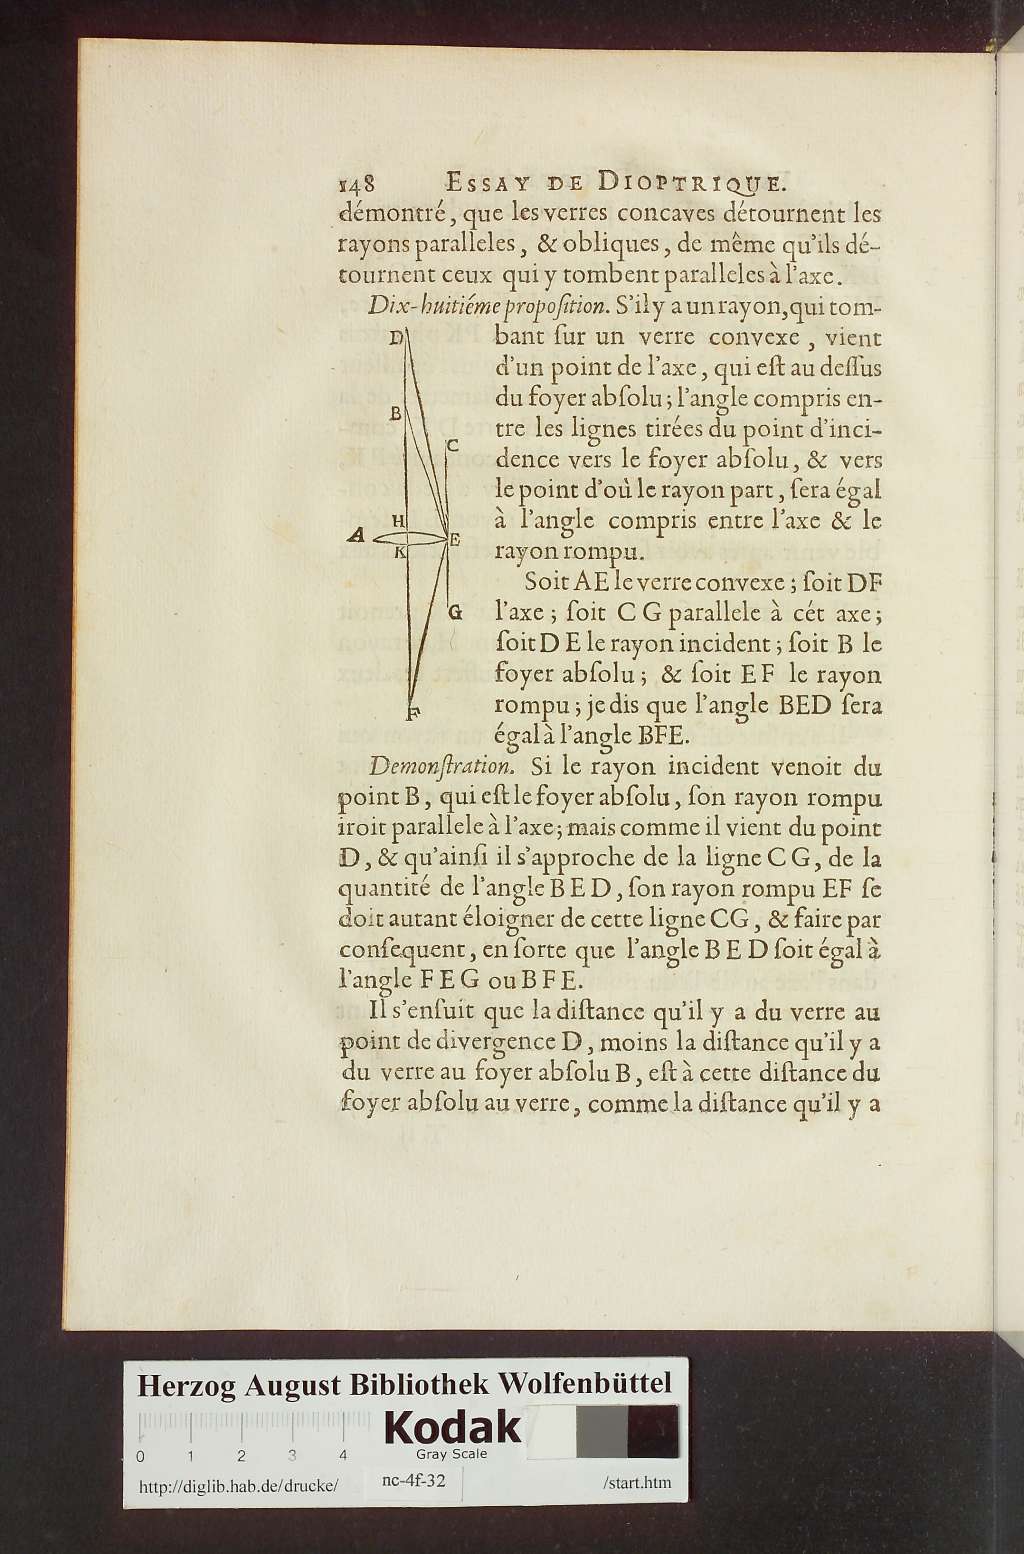 148 ESSAY DE DIOPTRIQUE.
démontré, que les verres concaves détournent les
rayons paralleles, & obliques, de même qu'ils dé-
tournent ceux qui y tombent paralleles à l'axe.
Dix-huitiéme propoſition. S'il y a un rayon, qui tom-
bant ſur un verre convexe, vient
d'un point de l'axe, qui eſt au deſſus
du foyer abſolu; l'angle compris en-
tre les lignes tirées du point d'inci-
dence vers le foyer abſolu, & vers
le point d'où le rayon part, ſera égal
à l'angle compris entre l'axe & le
rayon rompu.
Soit AE le verre convexe; ſoit DF
l'axe; ſoit C G parallele à cét axe;
ſoit D E le rayon incident; ſoit B le
foyer abſolu; & ſoit E F le rayon
rompu; je dis que l'angle BED ſera
égal à l'angle BFE.
D
B
C
H
A
E
K
G
F
Demonſtration. Si le rayon incident venoit du
point B, qui eſt le foyer abſolu, ſon rayon rompu
iroit parallele à l'axe; mais comme il vient du point
D, & qu'ainſi il s'approche de la ligne C G, de la
quantité de l'angle B E D, ſon rayon rompu EF ſe
doit autant éloigner de cette ligne CG, & faire par
conſequent, en ſorte que l'angle B E D ſoit égal à
l'angle F E G ou B F E.
Il s'enſuit que la diſtance qu'il y a du verre au
point de divergence D, moins la diſtance qu'il y a
du verre au foyer abſolu B, eſt à cette diſtance du
foyer abſolu au verre, comme la diſtance qu'il y a
Herzog August Bibliothek Wolfenbüttel
Kodak
Gray Scale
0 1 2 3 4
http://diglib.hab.de/drucke/ nc-4f-32 /start.htm